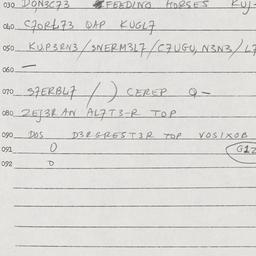 030 DON3C73 FEEDING HORSES KUJ-
040 C7ORL73 QAP KUGL7
050 KUP3RN3/SNERM3L7/C7UGU, N3N3/L7
060 —
070 S7ERBL7 /) CEREP Q-
080 ZEJ3R AN AL7T3-R TOP
090 DOS D3RGREST3R TOP VOSIXOB
091 0 G12
092 D